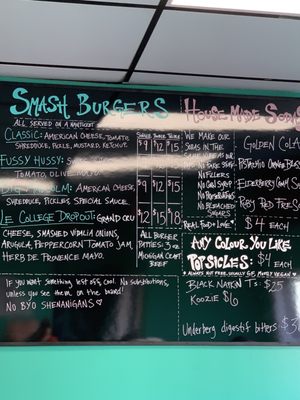 SMASH BURGERS
ALL SERVED ON A NANTUCKET
SINGLE DOUBLE TRIPLE
CLASSIC: AMERICAN CHEESE, TOMATO,
SHREDDUCE, PICKLE, MUSTARD, KETCHUP.
$9 $12 $15
FUSSY HUSSY:
TOMATO, OLIVE MAYO.
$9 $12 $15
AMERICAN CHEESE,
SHREDDUCE, PICKLES, SPECIAL SAUCE.
$9 $12 $15
LE COLLEGE DROPOUT: GRAND CRU
CHEESE, SMASHED VIDALIA ONIONS,
ARUGULA, PEPPERCORN TOMATO JAM,
HERB DE PROVENCE MAYO.
12 $15 $18
ALL BURGER
PATTIES: 3 oz
MICHIGAN CRAFT
BEEF
If you want something left off, cool. No substitutions,
unless you see them on the board!
NO BYO SHENANIGANS ♡
HOUSE MADE SODAS
WE MAKE OUR
SODAS IN THE
NO FILLERS
NO PRESERVATIVES
NO BLEACHED
SUGARS
REAL FOOD = LOVE
GOLDEN COLA
PISTACHIO
ELDERBERRY
RUBY RED
$4 EACH
ANY COLOUR YOU LIKE
POPSICLES: $4 EACH
* ALWAYS NUT FREE, USUALLY GF, MOSTLY VEGAN ♡
BLACK NAPKIN Ts: $25
KOOZIE $6
Underberg digestif bitters $3